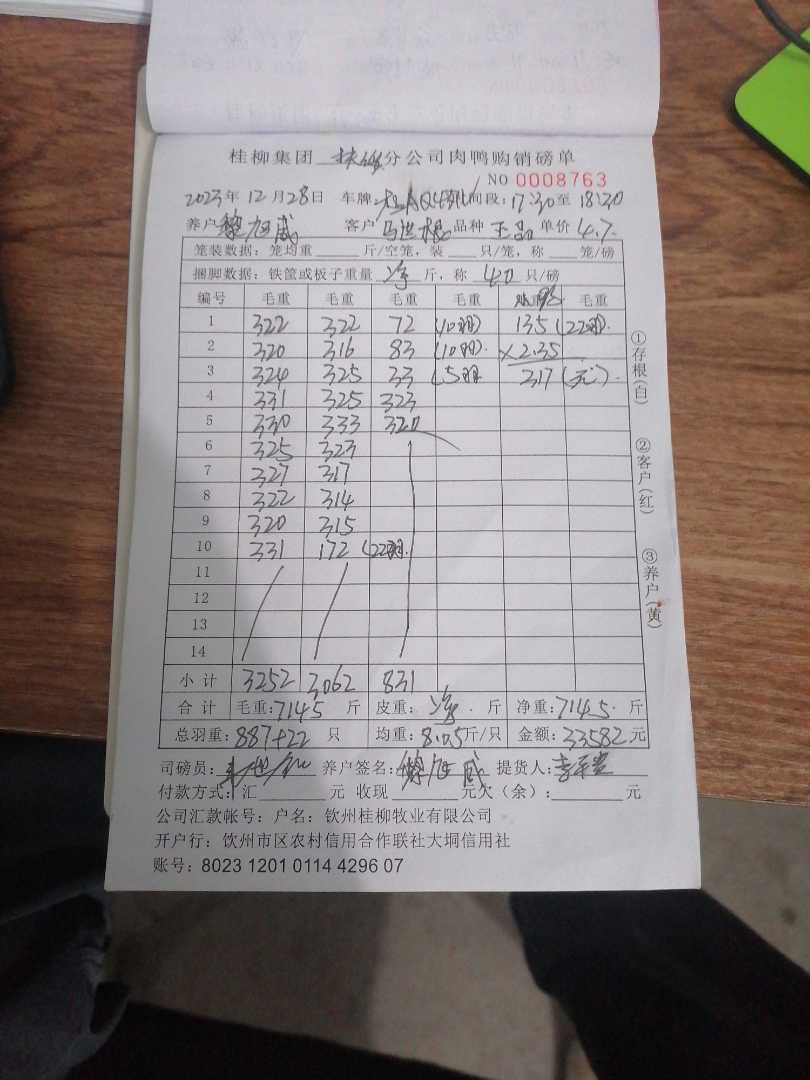 桂柳集团 扶绥 分公司肉鸭购销磅单
NO 0008763
2023年12月28日 车牌 时间段:17:30至18:30
养户 黎旭威 客户 马洪根 品种 单价 4.7
笼装数据:笼均重 斤/空笼,装 只/笼,称 笼/磅
捆脚数据:铁筐或板子重量 净 斤,称 40 只/磅
编号 毛重 毛重 毛重 毛重 毛重
1 322 322 72 (10羽) 135 (22羽).
2 320 316 83 (10羽). ×2.35
3 324 325 33 (5羽 317 (元).
4 331 325 323
5 330 333 320
6 325 323
7 327 317
8 322 314
9 320 315
10 331 172 (22羽.
11
12
13
14
小计 3252 3062 831
合计 毛重:7145 斤 皮重:净 斤 净重:7145. 斤
总羽重:887+22 只 均重:8.05斤/只 金额:33582元
司磅员: 养户签名:黎旭威 提货人:
付款方式:汇 元 收现 元欠(余): 元
公司汇款帐号:户名:钦州桂柳牧业有限公司
开户行:钦州市区农村信用合作联社大垌信用社
账号:8023 1201 0114 4296 07
①存根(白)
②客户(红)
③养户(黄)